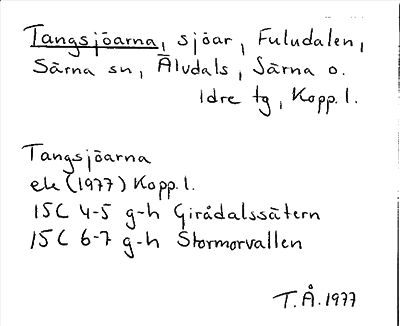 Tangsjöarna, sjöar, Fuludalen,
Särna sn, Älvdals, Särna o.
Idre tg, Kopp. l.
Tangsjöarna
ek (1977) Kopp. l.
15C 4-5 g-h Girådalssätern
15C 6-7 g-h Stormorvallen
T.Å. 1977